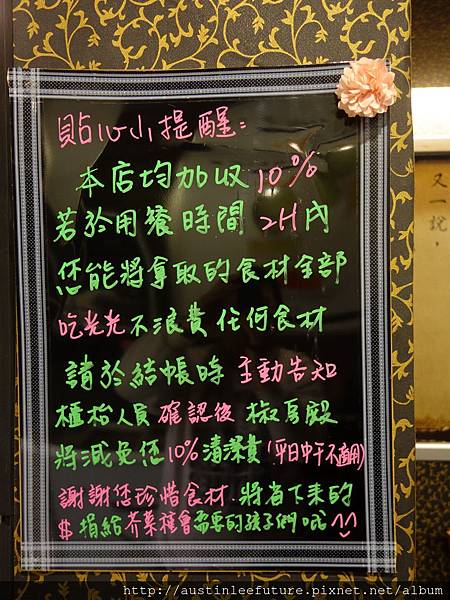 貼心小提醒:
本店均加收10%
若於用餐時間2H內
您能將拿取的食材全部
吃光光不浪費任何食材
請於結帳時主動告知
櫃枱人員確認後椒房殿
將減免您10%清潔費(平日中午不適用)
謝謝您珍惜食材.將省下來的
$捐給芥菜種會需要的孩子們哦^^
又一說,
http://austinleefuture.pixnet.net/album